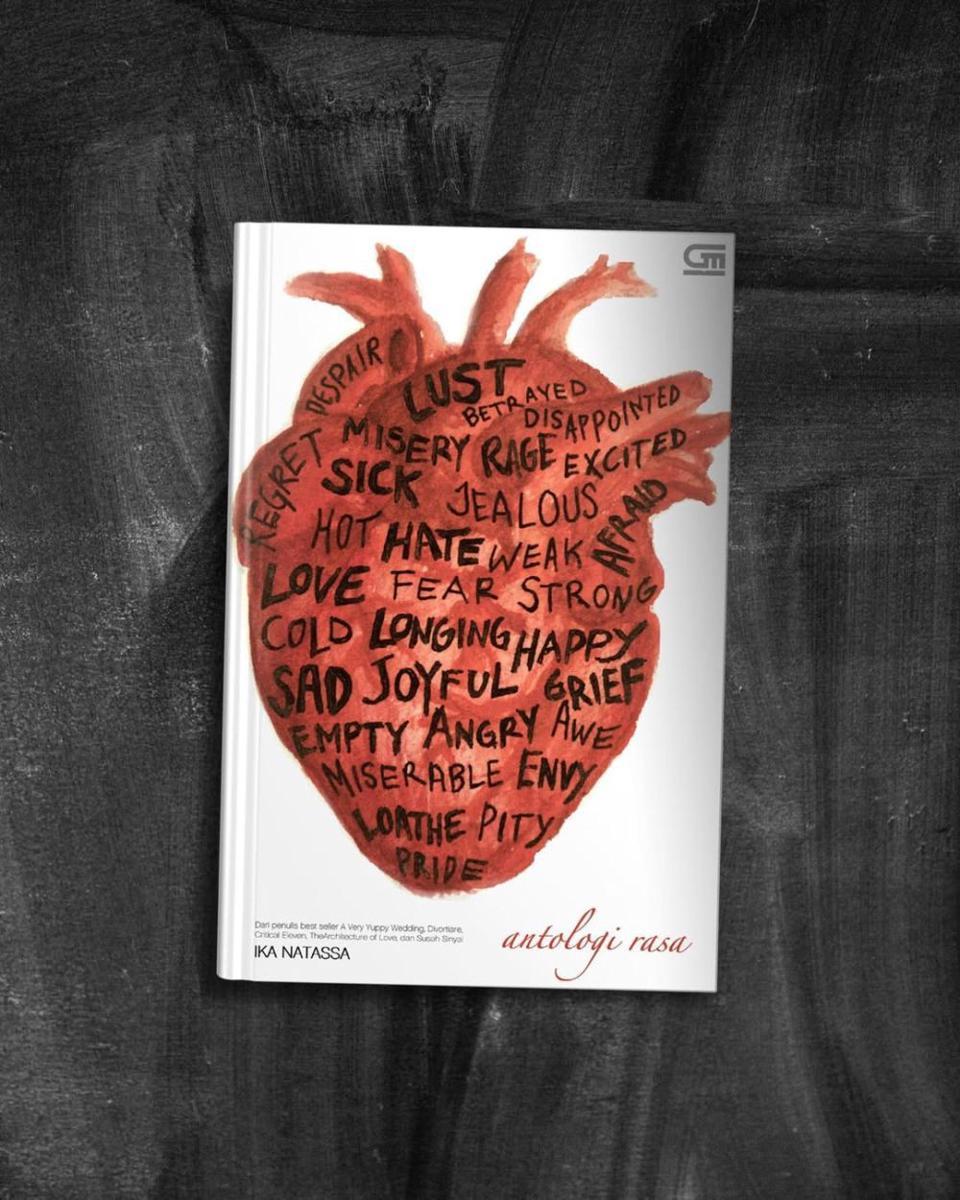 GM
DESPAIR
LUST
BETRAYED
DISAPPOINTED
REGRET
MISERY RAGE EXCITED
SICK JEALOUS AFRAID
HOT HATE WEAK
LOVE FEAR STRONG
COLD LONGING HAPPY
SAD JOYFUL GRIEF
EMPTY ANGRY AWE
MISERABLE ENVY
LOATHE PITY
PRIDE
Dari penulis best seller A Very Yuppy Wedding, Divortiare,
Critical Eleven, TheArchitecture of Love, dan Susah Sinyal
IKA NATASSA
antologi rasa